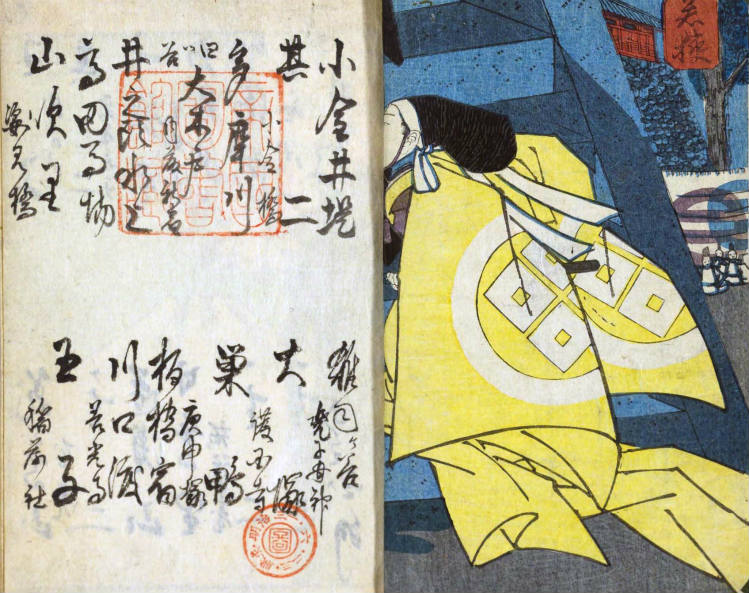 若狭
小金井堤
其二
小金橋
多摩川
大木戸
内藤新宿
井之頭水上
高田馬場
山吹里
姿見橋
雑司ヶ谷
鬼子母神
大塚
護国寺
巣鴨
庚申塚
板橋宿
川口渡
善光寺
王子
稲荷社
図